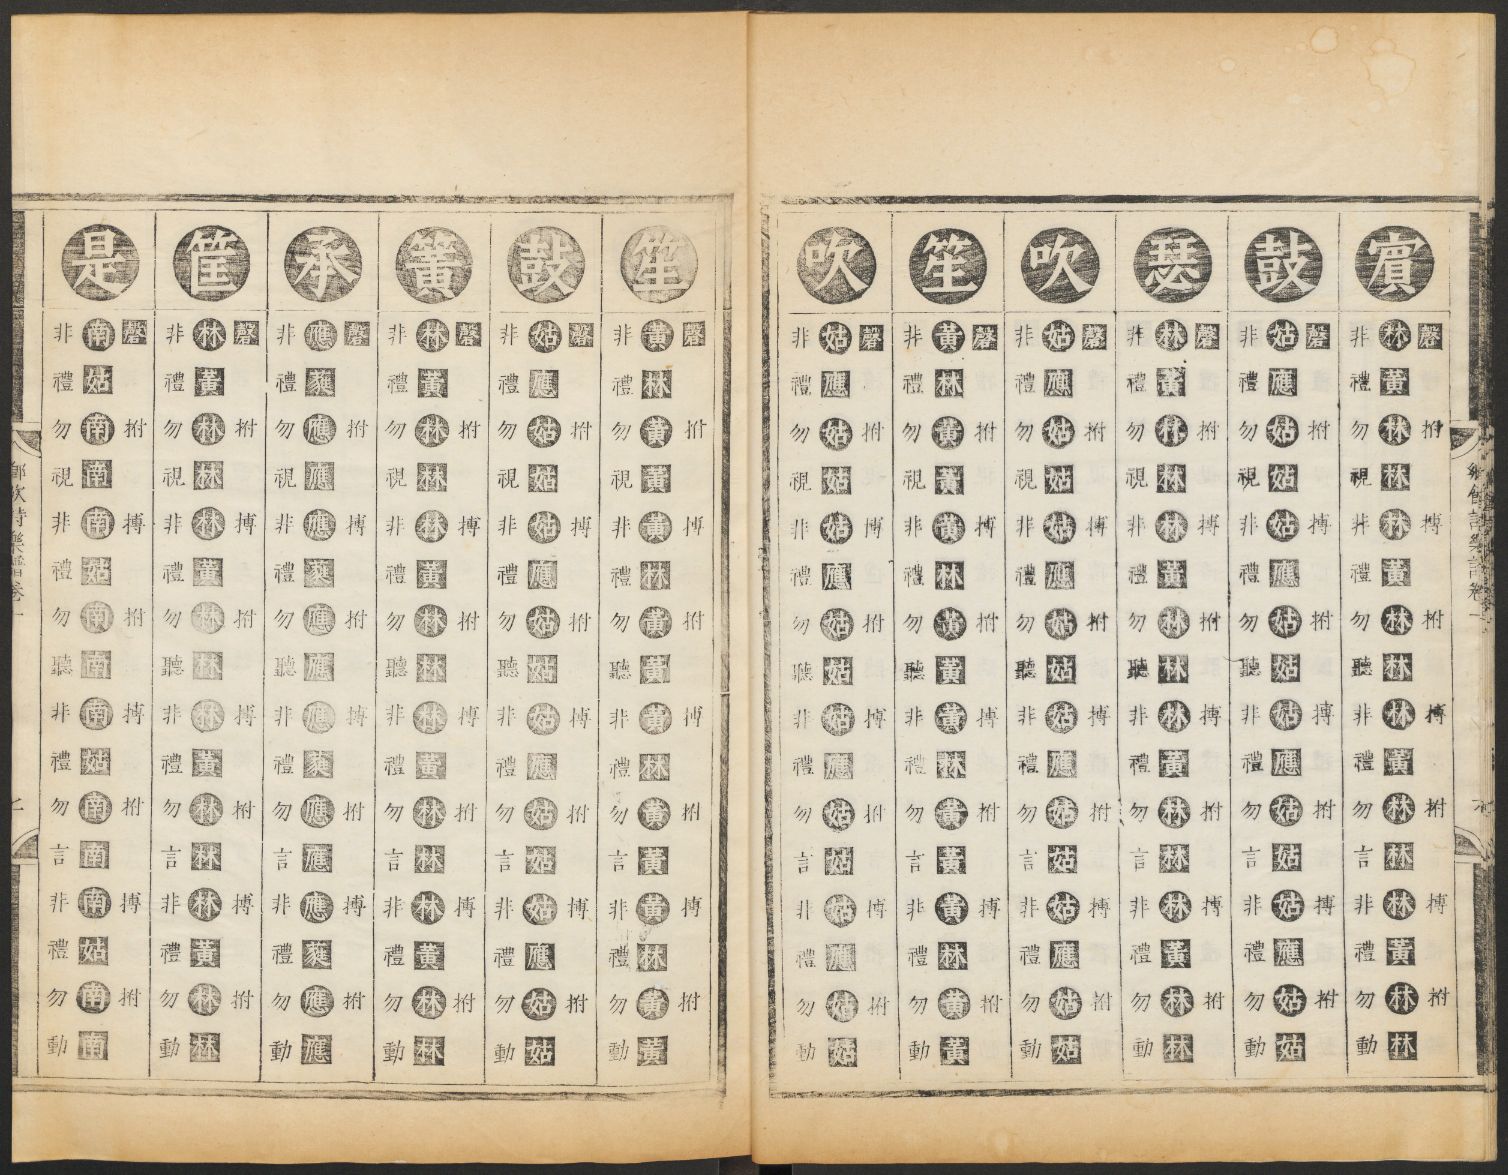 鄉飲詩樂譜卷一
賓
磬拊搏拊搏拊搏拊
林黃林林林黃林林林黃林林林黃林林
非禮勿視非禮勿聽非禮勿言非禮勿動
鼓
磬拊搏拊搏拊搏拊
姑應姑姑姑應姑姑姑應姑姑姑應姑姑
非禮勿視非禮勿聽非禮勿言非禮勿動
瑟
磬拊搏拊搏拊搏拊
林黃林林林黃林林林黃林林林黃林林
非禮勿視非禮勿聽非禮勿言非禮勿動
吹
磬拊搏拊搏拊搏拊
姑應姑姑姑應姑姑姑應姑姑姑應姑姑
非禮勿視非禮勿聽非禮勿言非禮勿動
笙
磬拊搏拊搏拊搏拊
黃林黃黃黃林黃黃黃林黃黃黃林黃黃
非禮勿視非禮勿聽非禮勿言非禮勿動
吹
磬拊搏拊搏拊搏拊
姑應姑姑姑應姑姑姑應姑姑姑應姑姑
非禮勿視非禮勿聽非禮勿言非禮勿動
笙
磬拊搏拊搏拊搏拊
黃林黃黃黃林黃黃黃林黃黃黃林黃黃
非禮勿視非禮勿聽非禮勿言非禮勿動
鼓
磬拊搏拊搏拊搏拊
姑應姑姑姑應姑姑姑應姑姑姑應姑姑
非禮勿視非禮勿聽非禮勿言非禮勿動
簧
磬拊搏拊搏拊搏拊
林黃林林林黃林林林黃林林林黃林林
非禮勿視非禮勿聽非禮勿言非禮勿動
承
磬拊搏拊搏拊搏拊
應蕤應應應蕤應應應蕤應應應蕤應應
非禮勿視非禮勿聽非禮勿言非禮勿動
筐
磬拊搏拊搏拊搏拊
林黃林林林黃林林林黃林林林黃林林
非禮勿視非禮勿聽非禮勿言非禮勿動
是
磬拊搏拊搏拊搏拊
南姑南南南姑南南南姑南南南姑南南
非禮勿視非禮勿聽非禮勿言非禮勿動
鄉飲詩樂譜卷一